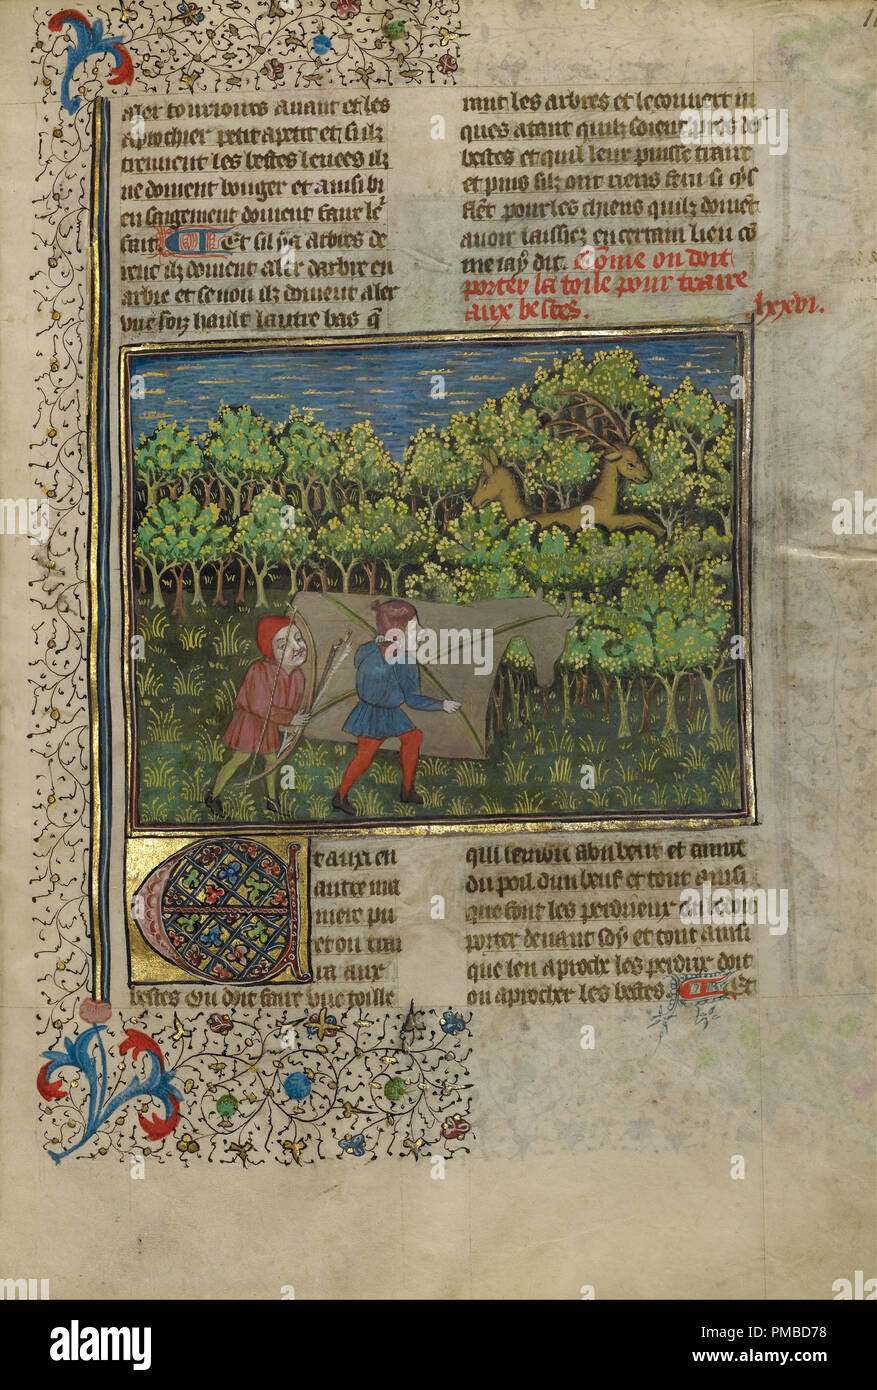 aler tousiours auant et les
aprochier petit a petit et silz
treuuent les bestes leuees ilz
ne doiuent bougier et ainsi bi
en saigement doiuent faire le
fait. Et sil y a arbres de
ilz doiuent aler darbre en
arbre et se non ilz doiuent aler
vne fois hault lautre bas
les arbres et le couuert iu
ques atant quilz soient pres des
bestes et quil leur puisse traire
et puis silz ont riens feru si
pour les chiens quilz doiuet
auoir laissiez en certain lieu co
me iay dit. Come on doit
porter la toile pour traire
aux bestes.
lxxvi.
Et aussi en
autre ma
niere pu
et on trai
re aux
bestes On doit faire vne toille
qui
du poil dun beuf et tout ainsi
que font les perdrieux
porter deuant soy et tout ainsi
que len aproche les perdrix doit
on aprocher les bestes. Et
alamy
Image ID: PMBD78
www.alamy.com